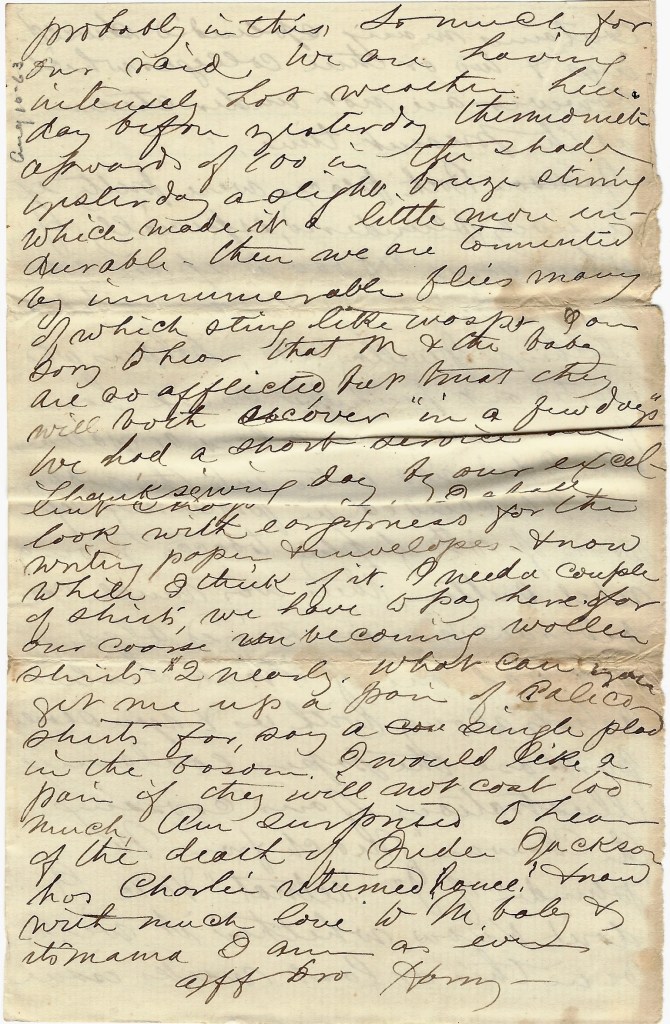 probably in this, So much for
our raid, We are having
intensely hot weather here.
day before yesterday thermomete
upwards of 100 in the shade
yesterday a slight breeze stiring
which made it a little more en-
durable - then we are tormented
by innumerable flies many
of which sting like wasps, I am
sorry to hear that M & the baby
are so afflicted but trust they
will both recover "in a few days"
We had a short service on
Thanksgiving day by our excel-
lent Chap. I shall
look with eargirness for the
writing paper & envelopes - & now
while I think of it. I need a couple
of shirts, we have to pay here for
our coarse unbecoming wollen
shirts $2 nearly. What can you
get me up a pair of calico
shirts for, say a single plad
in the bosom. I would like a
pair if they will not cost too
much, Am surprised to hear
of the death of Jackson
has Charlie returned & now
with much love to M baby &
its mama I am as ever
Aff Bro Harry -
Aug 10 - 63